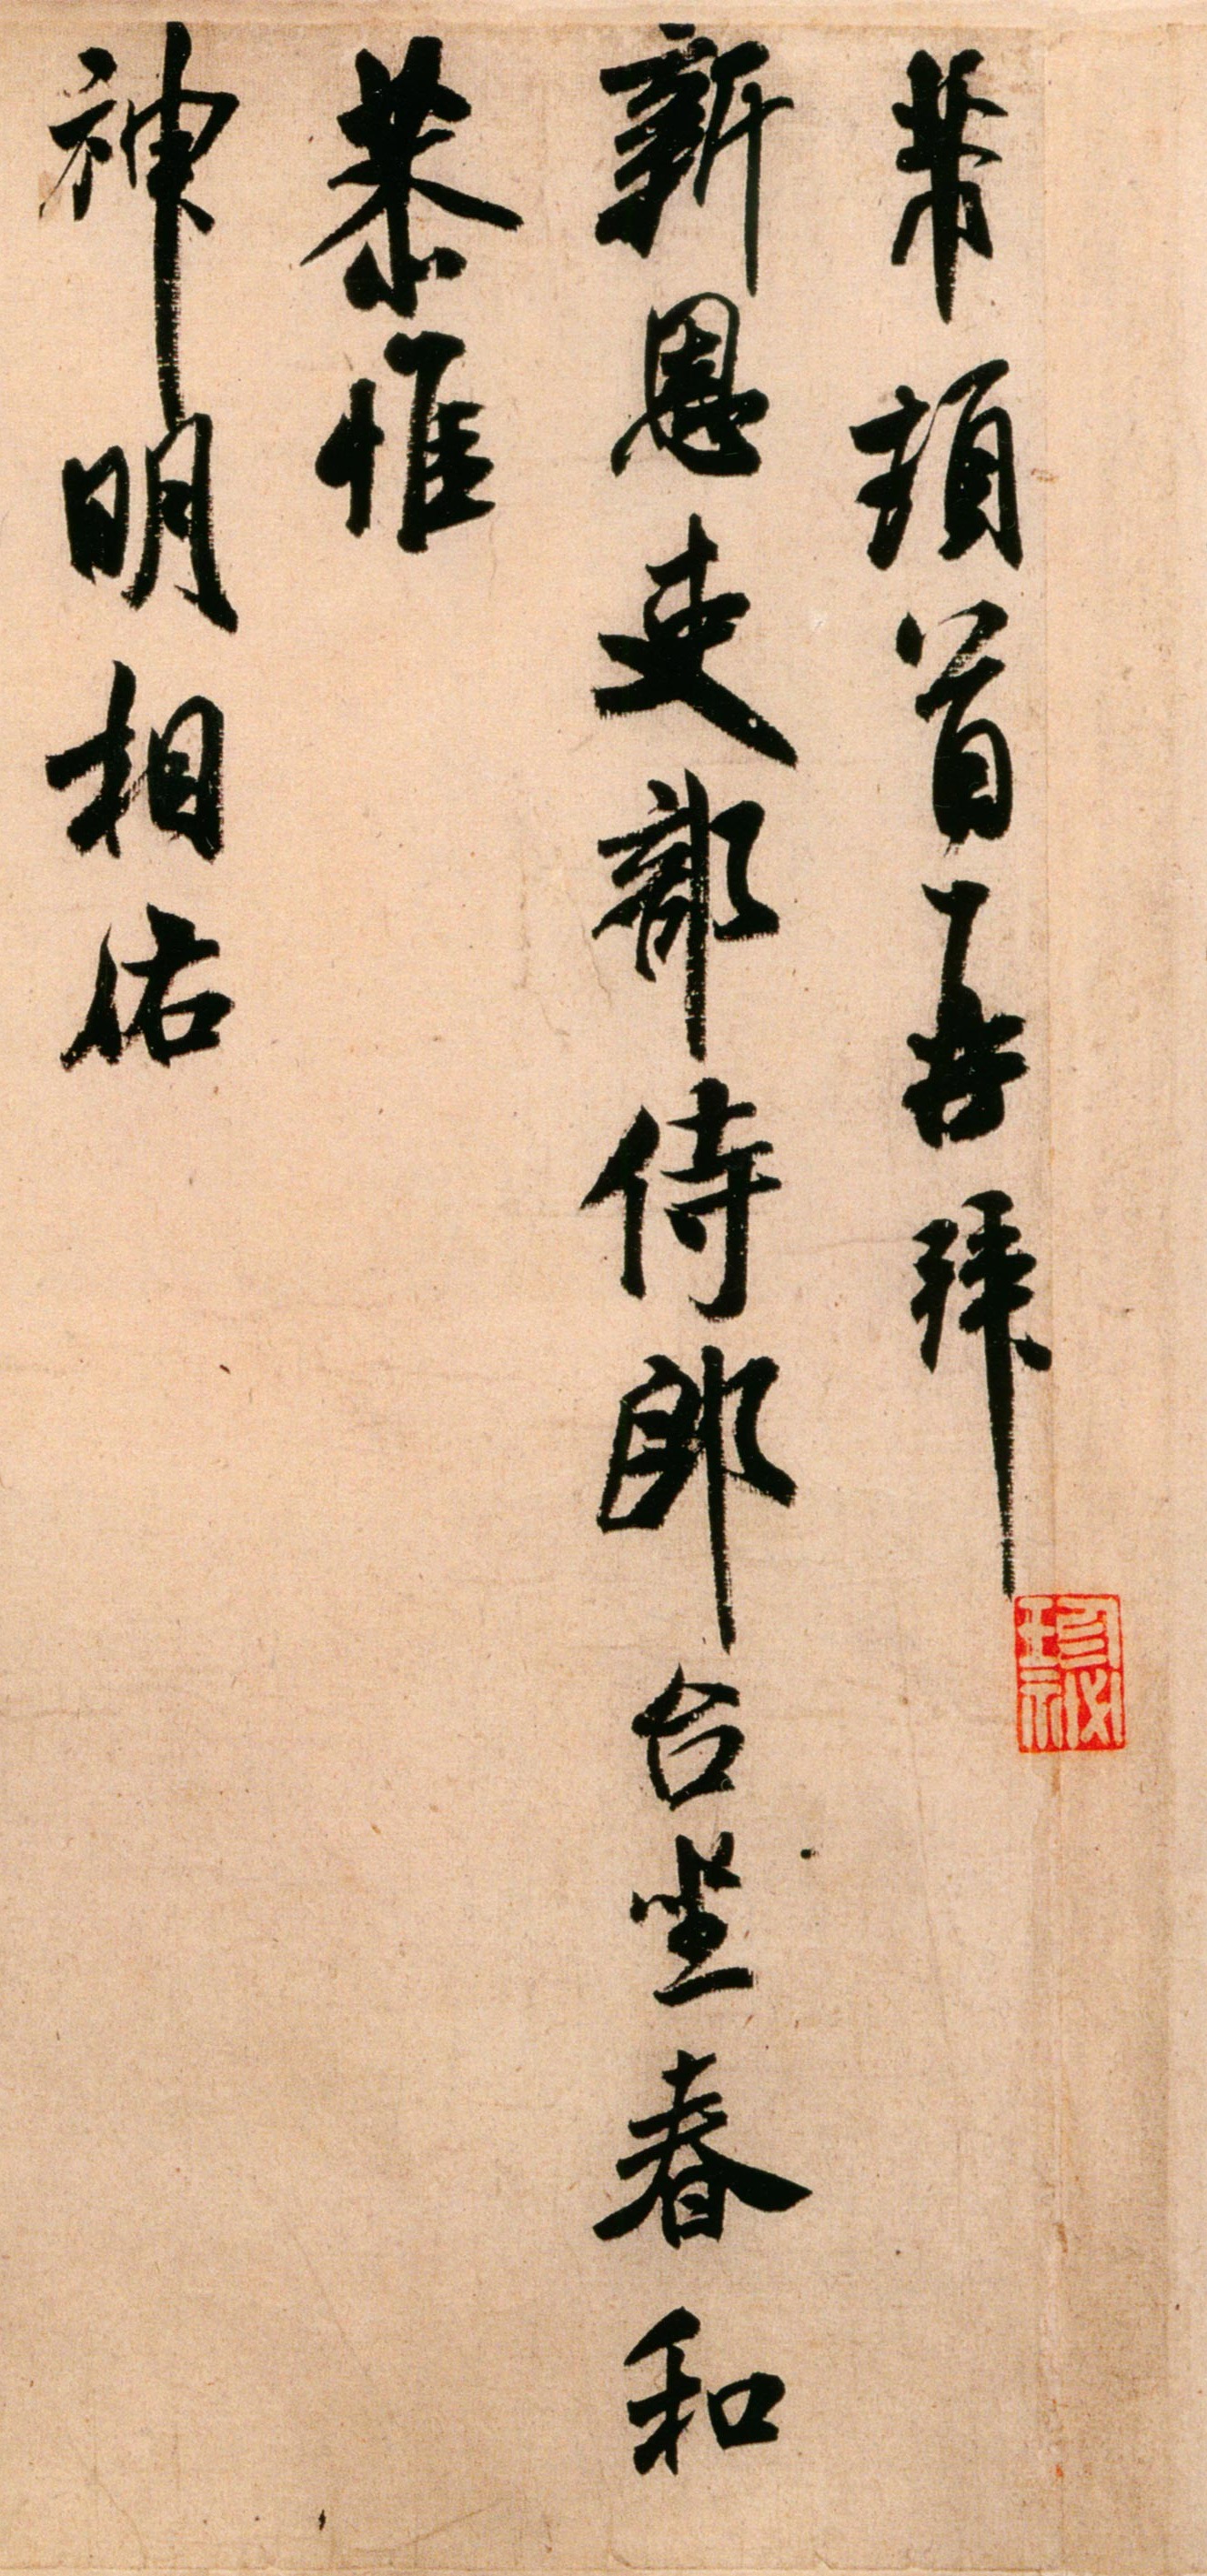 芾頓首再拜
新恩吏部侍郎台坐春和
恭惟
神明相佑
珍秘